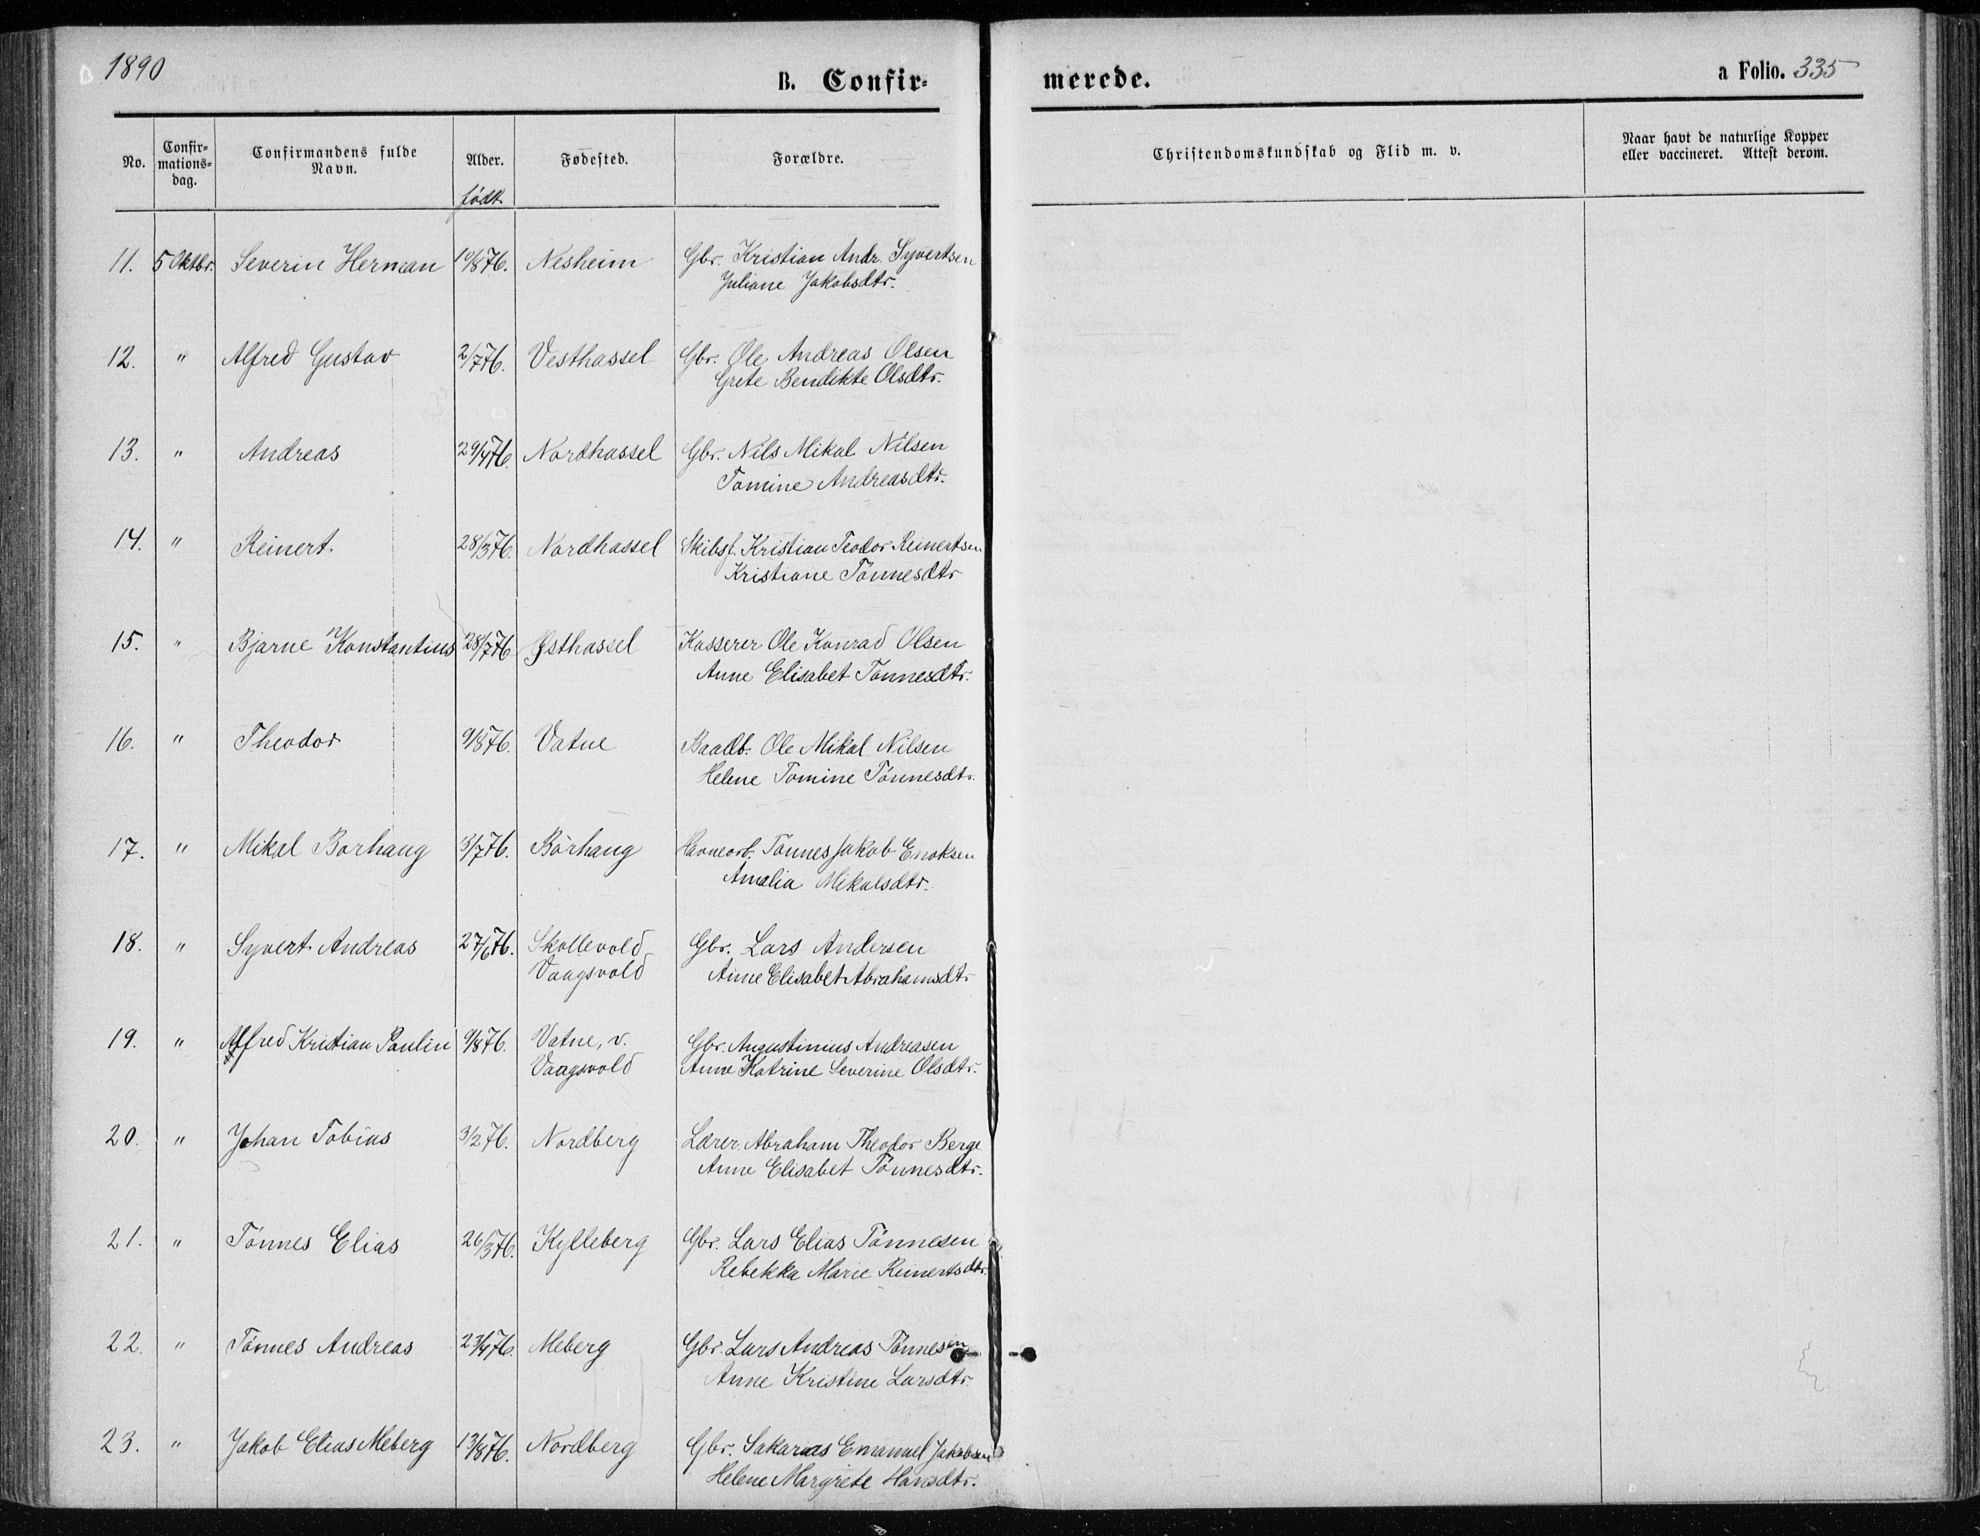 1890
B. Confir-
merede.
a Folio. 335
No.
Confir-
mations-
dag.
Confirmandens fulde
Navn.
Alder.
født
Fødested.
Forældre.
Christendomskundskab og Flid m. v.
Naar havt de naturlige Kopper
eller vaccineret. Attest derom.
11. 5 Oktbr. Severin Herman 10/8 76. Nesheim Gbr. Kristian Andr. Syvertsen
Juliane Jakobsdtr.
12. " Alfred Gustav 2/7 76. Vesthassel Gbr. Ole Andreas Olsen
Grete Bendikte Olsdtr.
13. " Andreas 29/4 76. Nordhassel Gbr. Nils Mikal Nilsen
Tomine Andreasdtr.
14. " Reinert 28/3 76. Nordhassel Skibsf. Kristian Teodor Reinertsen
Kristiane Tönnesdtr
15. " Bjarne Konstantius 28/7 76 Østhassel Kasserer Ole Konrad Olsen
Anne Elisabet Tönnesdtr.
16. " Theodor 9/8 76. Vatne Baadb. Ole Mikal Nilsen
Helene Tomine Tönnesdtr.
17. " Mikal Borhaug 3/7 76. Börhaug Havnearb. Tönnes Jakob Enoksen
Amalia Mikalsdtr.
18. " Syvert Andreas 27/6 76. Skollevold Gbr. Lars Andersen
Vaagsvold Anne Elisabet Abrahamsdtr
19. " Alfred Kristian Paulin 9/8 76. Vatne, v. Gbr. Augustinius Andreasen
Vaagsvold Anne Katrine Severine Olsdtr.
20. " Johan Tobias 3/2 76. Nordberg Lærer Abraham Theodor Berge
Anne Elisabet Tönnesdtr.
21. " Tönnes Elias 26/3 76. Kylleberg Gbr. Lars Elias Tönnesen
Rebekka Marie Reinertsdtr.
22. " Tönnes Andreas 23/4 76. Meberg Gbr. Lars Andreas Tönnesen
Anne Kristine Larsdtr.
23. " Jakob Elias Meberg 13/8 76. Nordberg Gbr. Sakarias Emanuel Jakobsen
Helene Margrete Hansdtr.